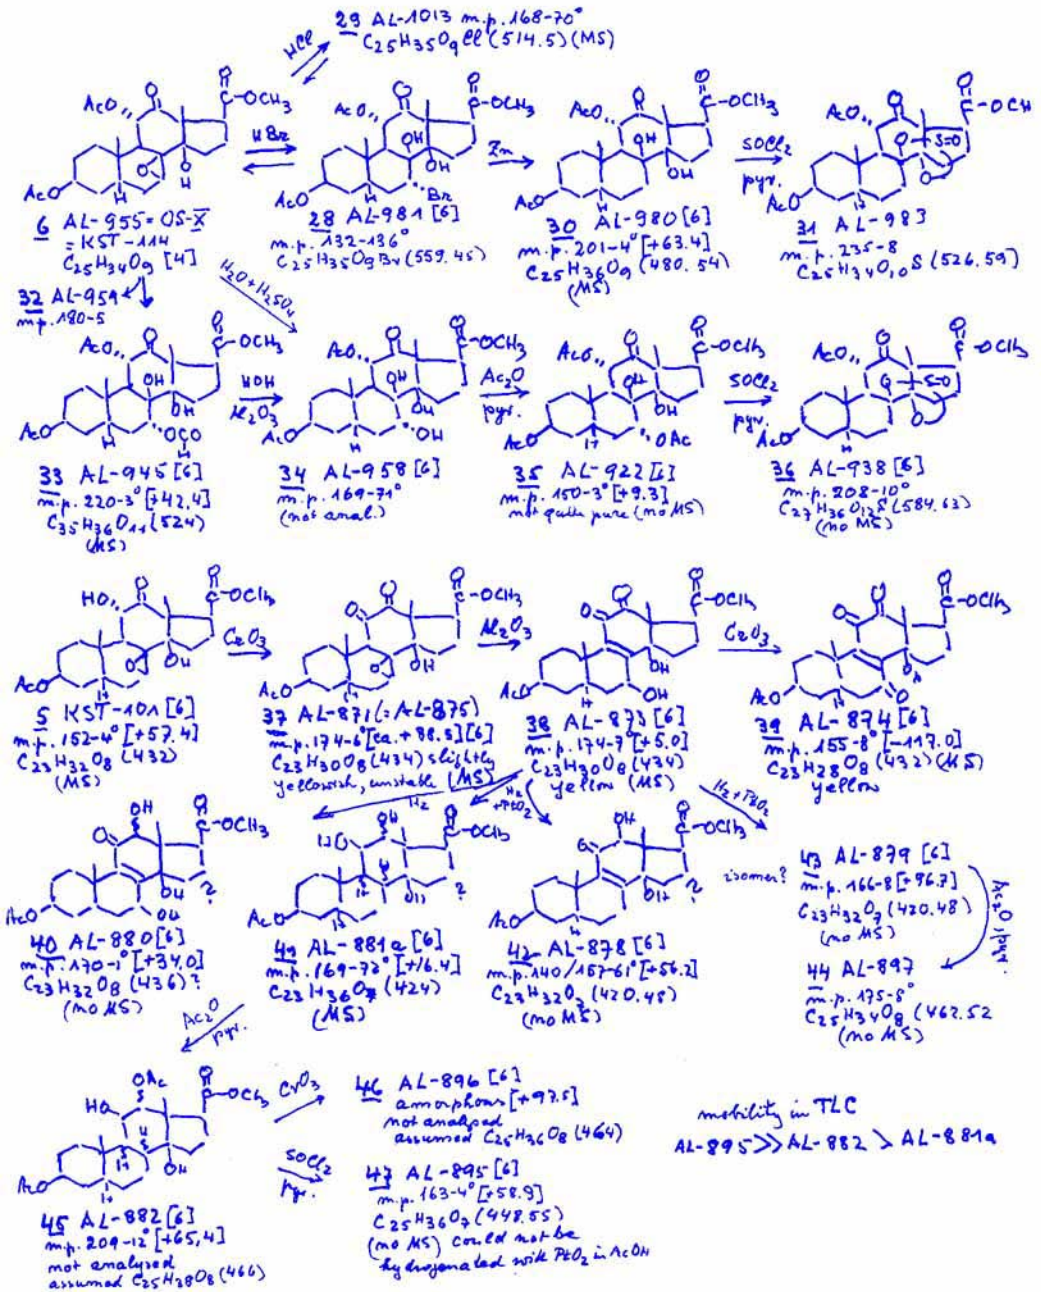 29 AL-1013 m.p. 168-70°
C25H35O9Cl (514.5) (MS)
HCl
HBr
Zn
SOCl2
pyr.
6 AL-955 = OS-X
= KST-114
C25H34O9 [4]
28 AL-981 [6]
m.p. 132-136°
C25H35O9Br (559.45)
30 AL-980 [6]
m.p. 201-4° [+63.4]
C25H36O9 (480.54)
(MS)
31 AL-983
m.p. 235-8
C25H34O10S (526.59)
32 AL-959
m.p. 180-5
H2O+H2SO4
HOH
Al2O3
Ac2O
pyr.
SOCl2
pyr.
33 AL-945 [6]
m.p. 220-3° [+42.4]
C35H36O11 (524)
(MS)
34 AL-958 [6]
m.p. 169-71°
(not anal.)
35 AL-922 [6]
m.p. 150-3° [+9.3]
not quite pure (no MS)
36 AL-938 [6]
m.p. 208-10°
C27H36O12S (584.63)
(no MS)
CrO3
Al2O3
CrO3
5 KST-101 [6]
m.p. 152-4° [+57.4]
C23H32O8 (432)
(MS)
37 AL-871 (=AL-875)
m.p. 174-6° [ca. +88.5] [6]
C23H30O8 (434) slightly
yellowish, unstable (MS)
38 AL-873 [6]
m.p. 174-7° [+5.0]
C23H30O8 (434)
yellow (MS)
39 AL-874 [6]
m.p. 155-8° [-117.0]
C23H28O8 (432) (MS)
yellow
H2
H2
+PtO2
H2+PtO2
40 AL-880 [6]
m.p. 170-1° [+34.0]
C23H32O8 (436)?
(no MS)
41 AL-881a [6]
m.p. 169-72° [+16.4]
C23H36O7 (424)
(MS)
42 AL-878 [6]
m.p. 140/157-61° [+56.2]
C23H32O7 (420.48)
(no MS)
isomer?
43 AL-879 [6]
m.p. 166-8 [+96.7]
C23H32O7 (420.48)
(no MS)
Ac2O, pyr.
44 AL-897
m.p. 175-8°
C25H34O8 (462.52
(no MS)
Ac2O
pyr.
CrO3
SOCl2
pyr.
45 AL-882 [6]
m.p. 209-12° [+65,4]
not analysed
assumed C25H38O8 (466)
46 AL-896 [6]
amorphous [+97.5]
not analysed
assumed C25H36O8 (464)
47 AL-895 [6]
m.p. 163-4° [+58.9]
C25H36O7 (448.55)
(no MS) could not be
hydrogenated with PtO2 in AcOH
mobility in TLC
AL-895 >> AL-882 > AL-881a